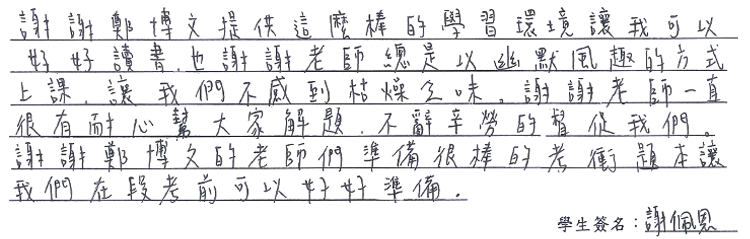 謝謝鄭博文提供這麼棒的學習環境讓我可以
好好讀書.也謝謝老師總是以幽默風趣的方式
上課.讓我們不感到枯燥乏味。謝謝老師一直
很有耐心幫大家解題.不辭辛勞的督促我們。
謝謝鄭博文的老師們準備很棒的考衝題本讓
我們在段考前可以好好準備.
學生簽名:謝佩恩